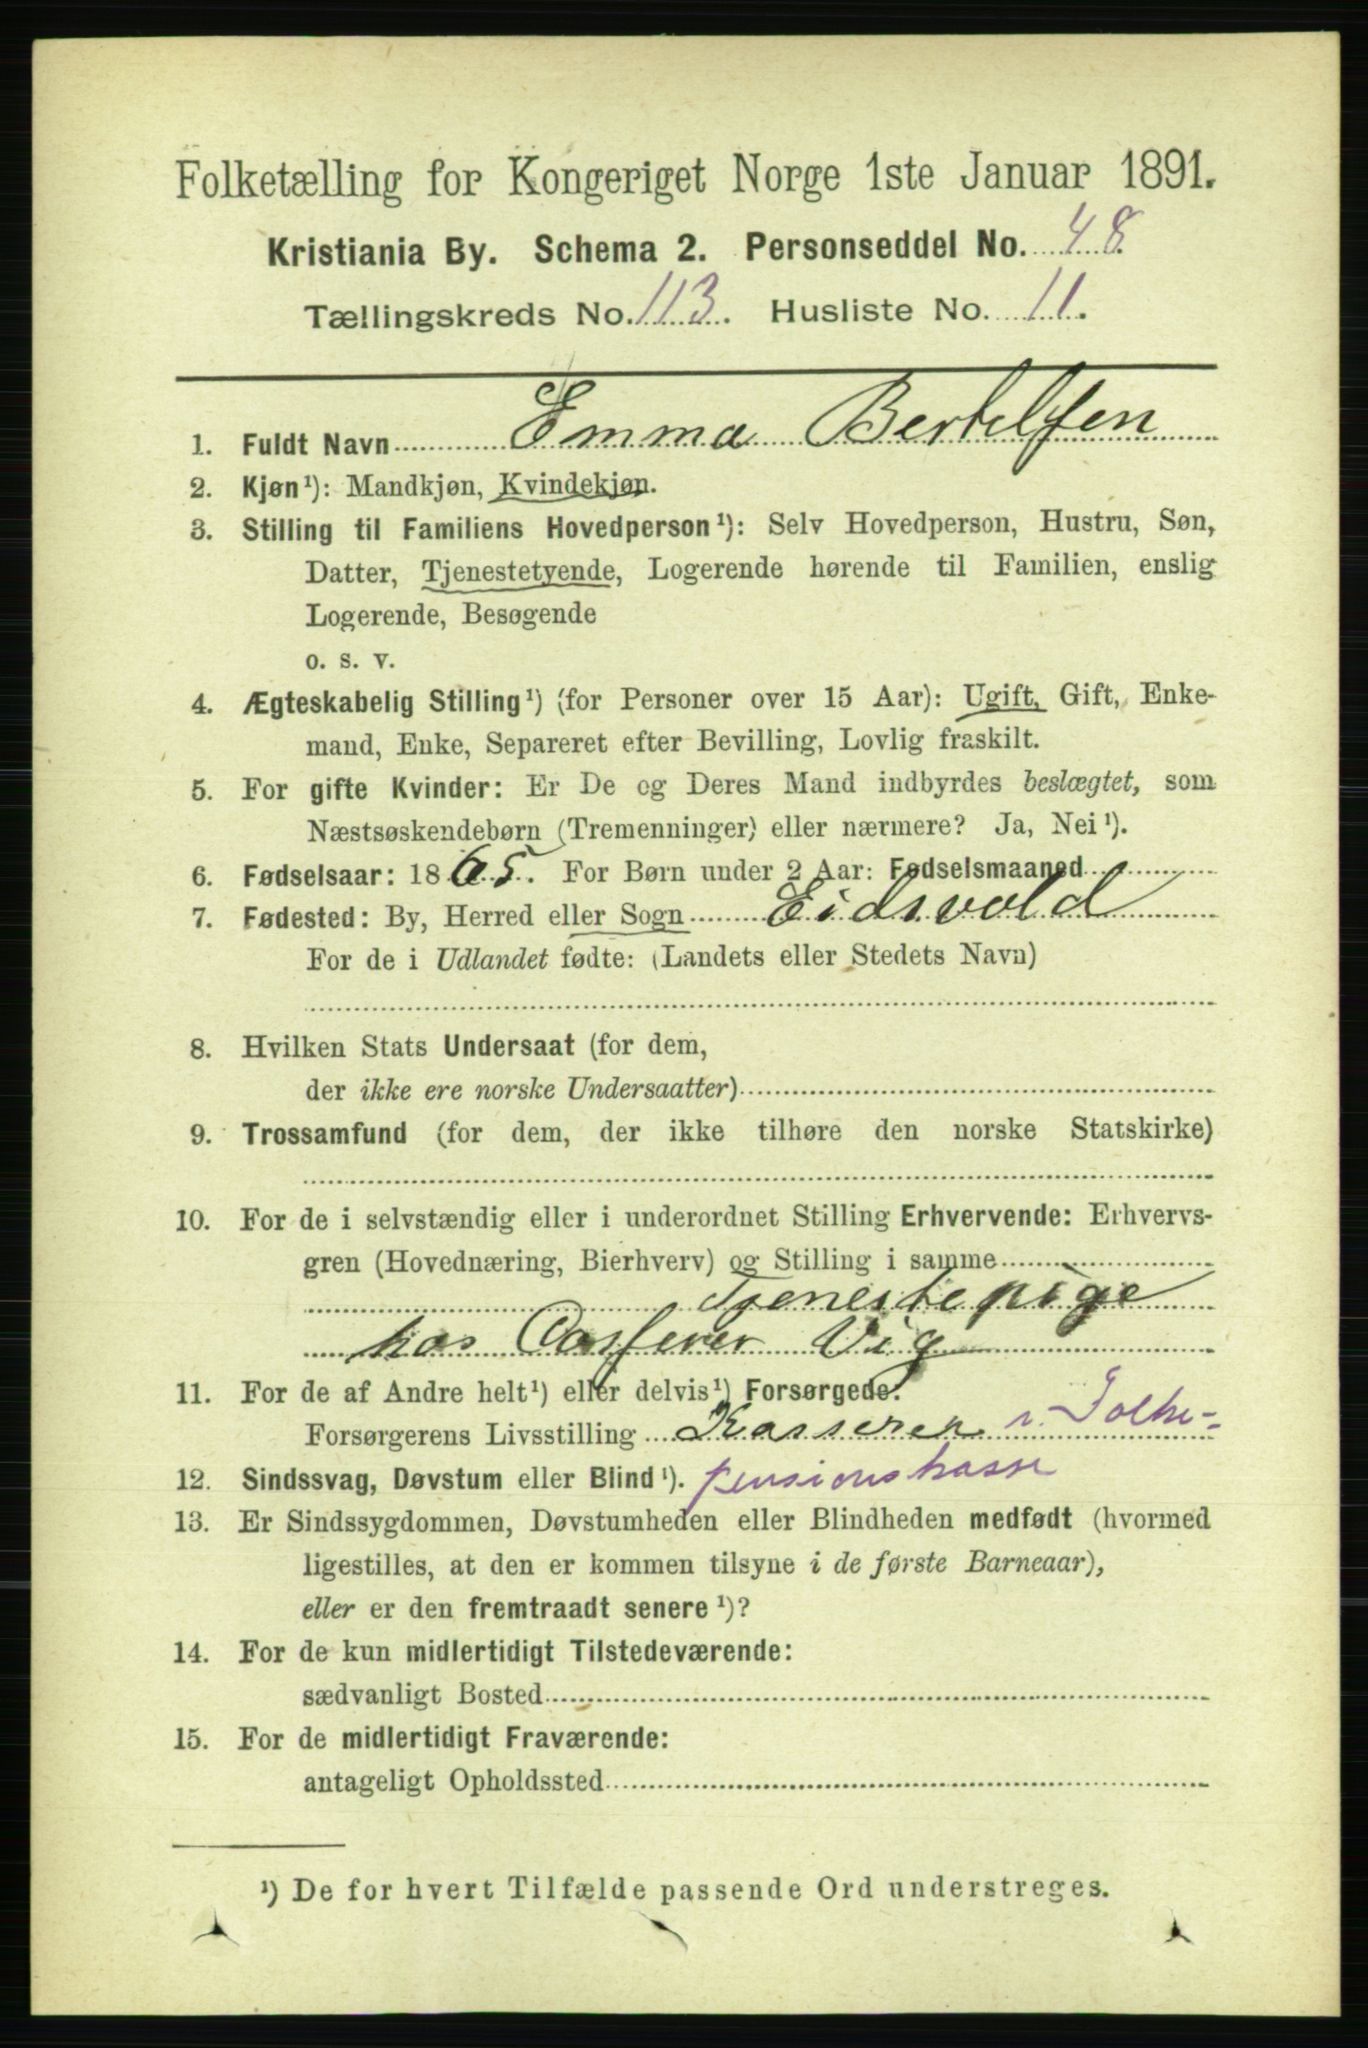 Folketælling for Kongeriget Norge 1ste Januar 1891.
Kristiania By. Schema 2. Personseddel No. 48.
Tællingskreds No. 113. Husliste No. 11.
1. Fuldt Navn Emma Bertelsen
2. Kjøn¹): Mandkjøn, Kvindekjøn.
3. Stilling til Familiens Hovedperson¹): Selv Hovedperson, Hustru, Søn,
Datter, Tjenestetyende, Logerende hørende til Familien, enslig
Logerende, Besøgende
o. s. v.
4. Ægteskabelig Stilling¹) (for Personer over 15 Aar): Ugift, Gift, Enke-
mand, Enke, Separeret efter Bevilling, Lovlig fraskilt.
5. For gifte Kvinder: Er De og Deres Mand indbyrdes beslægtet, som
Næstsøskendebørn (Tremenninger) eller nærmere? Ja, Nei¹).
6. Fødselsaar: 1865. For Børn under 2 Aar: Fødselsmaaned
7. Fødested: By, Herred eller Sogn Eidsvold
For de i Udlandet fødte: (Landets eller Stedets Navn)
8. Hvilken Stats Undersaat (for dem,
der ikke ere norske Undersaatter)
9. Trossamfund (for dem, der ikke tilhøre den norske Statskirke)
10. For de i selvstændig eller i underordnet Stilling Erhvervende: Erhvervs-
gren (Hovednæring, Bierhverv) og Stilling i samme
Tjenestepige
hos Vig
11. For de af Andre helt¹) eller delvis¹) Forsørgede:
Forsørgerens Livsstilling Kasserer
12. Sindssvag, Døvstum eller Blind¹). pensionskasse
13. Er Sindssygdommen, Døvstumheden eller Blindheden medfødt (hvormed
ligestilles, at den er kommen tilsyne i de første Barneaar),
eller er den fremtraadt senere¹)?
14. For de kun midlertidigt Tilstedeværende:
sædvanligt Bosted
15. For de midlertidigt Fraværende:
antageligt Opholdssted
¹) De for hvert Tilfælde passende Ord understreges.